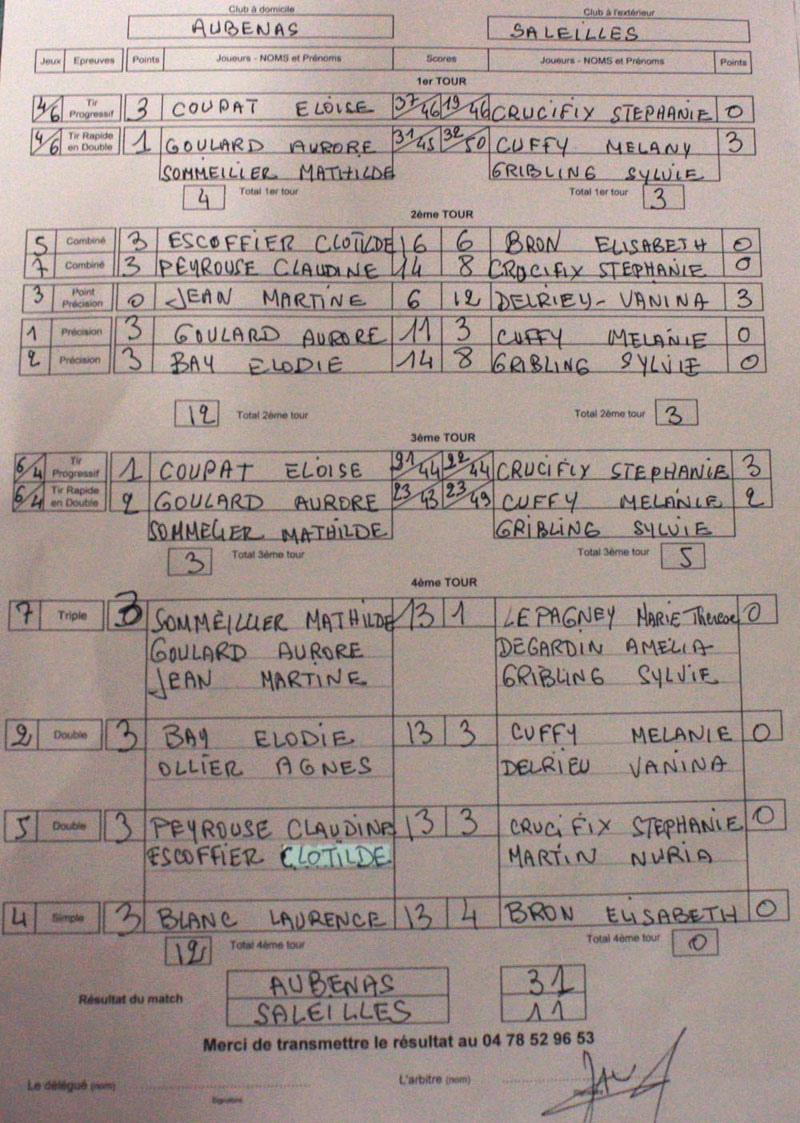 Club à domicile Club à l'extérieur
AUBENAS SALEILLES
Jeux Epreuves Points Joueurs - NOMS et Prénoms Scores Joueurs - NOMS et Prénoms Points
1er TOUR
4/6 Tir Progressif 3 COUPAT ELOISE 37/46 19/46 CRUCIFIX STEPHANIE 0
4/6 Tir Rapide en Double 1 GOULARD AURORE 31/45 32/50 CUFFY MELANY 3
SOMMEILLER MATHILDE GRIBLING SYLVIE
4 Total 1er tour Total 1er tour 3
2ème TOUR
5 Combiné 3 ESCOFFIER CLOTILDE 16 6 BRON ELISABETH 0
7 Combiné 3 PEYROUSE CLAUDINE 14 8 CRUCIFIX STEPHANIE 0
3 Point Précision 0 JEAN MARTINE 6 12 DELRIEY-VANINA 3
1 Précision 3 GOULARD AURORE 11 3 CUFFY MELANIE 0
2 Précision 3 BAY ELODIE 14 8 GRIBLING SYLVIE 0
12 Total 2ème tour Total 2ème tour 3
3ème TOUR
6/4 Tir Progressif 1 COUPAT ELOISE /44 /44 CRUCIFIX STEPHANIE 3
6/4 Tir Rapide en Double 2 GOULARD AURORE 23/43 23/49 CUFFY MELANIE 2
SOMMELIER MATHILDE GRIBLING SYLVIE
3 Total 3ème tour Total 3ème tour 5
4ème TOUR
7 Triple 3 SOMMEILLER MATHILDE 13 1 LEPAGNEY MARIE Therese 0
GOULARD AURORE DEGARDIN AMELIA
JEAN MARTINE GRIBLING SYLVIE
2 Double 3 BAY ELODIE 13 3 CUFFY MELANIE 0
OLLIER AGNES DELRIEU VANINA
5 Double 3 PEYROUSE CLAUDINE 13 3 CRUCIFIX STEPHANIE 0
ESCOFFIER CLOTILDE MARTIN NURIA
4 Simple 3 BLANC LAURENCE 13 4 BRON ELISABETH 0
12 Total 4ème tour Total 4ème tour 0
Résultat du match AUBENAS 31
SALEILLES 11
Merci de transmettre le résultat au 04 78 52 96 53
Le délégué (nom) L'arbitre (nom)
Signature